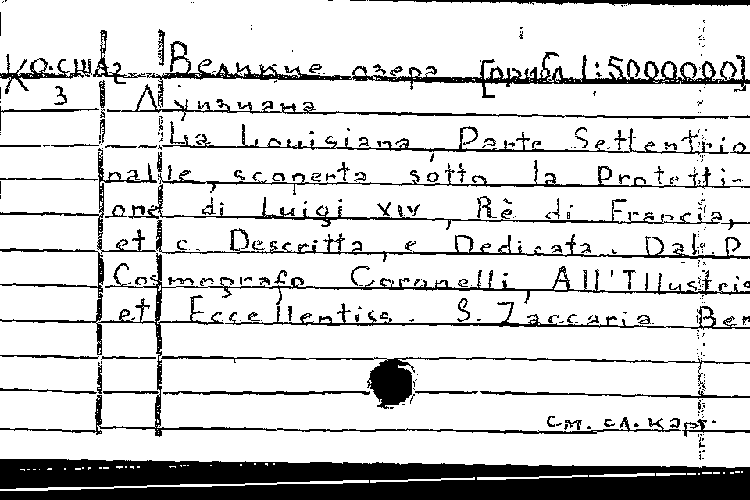 КО.США2 Великие озера [прибл. 1:5000000]
3 Луизиана
La Louisiana, Parte Settentrio
nalle, scoperta sotto la Protetti-
one di Luigi XIV, Rè di Francia,
etc. Descritta, e Dedicata. Dal. P.
Cosmografo Coronelli, All'Illustris
et Eccellentiss. S. Zaccaria Ber
см. сл. карт.